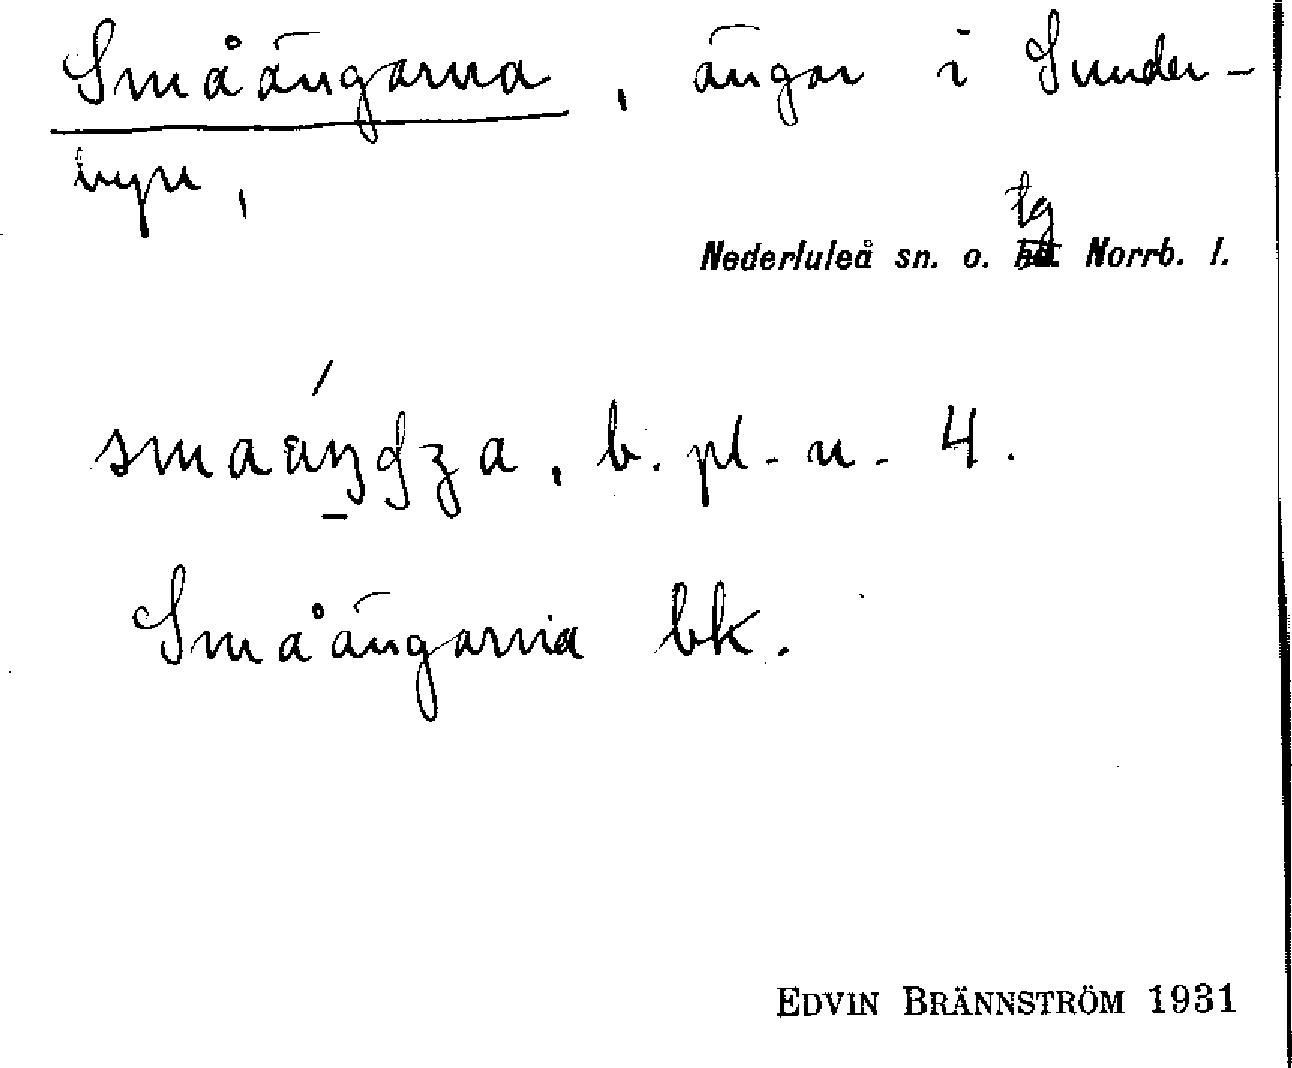 Småängarna, ängar i Sunder-
byn,
tg
Nederluleå sn. o. Norrb. l.
b. pl. n. 4.
Småängarna bk.
EDVIN BRÄNNSTRÖM 1931